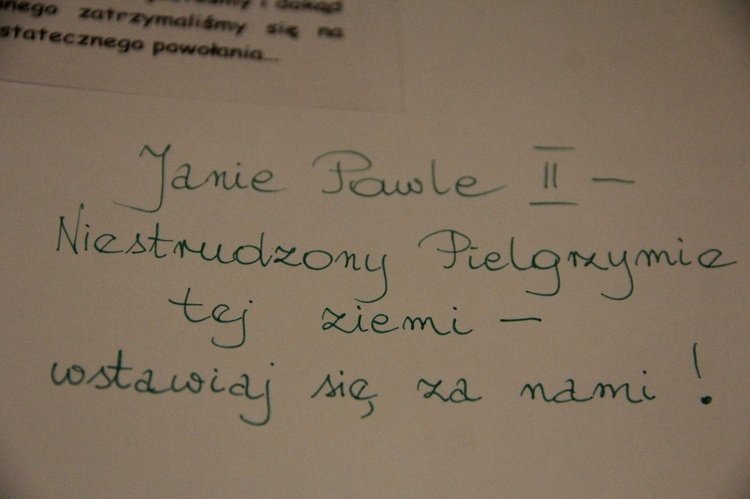 i dokąd
zatrzymaliśmy się na
statecznego powołania...
Janie Pawle II –
Niestrudzony Pielgrzymie
tej ziemi –
wstawiaj się za nami!